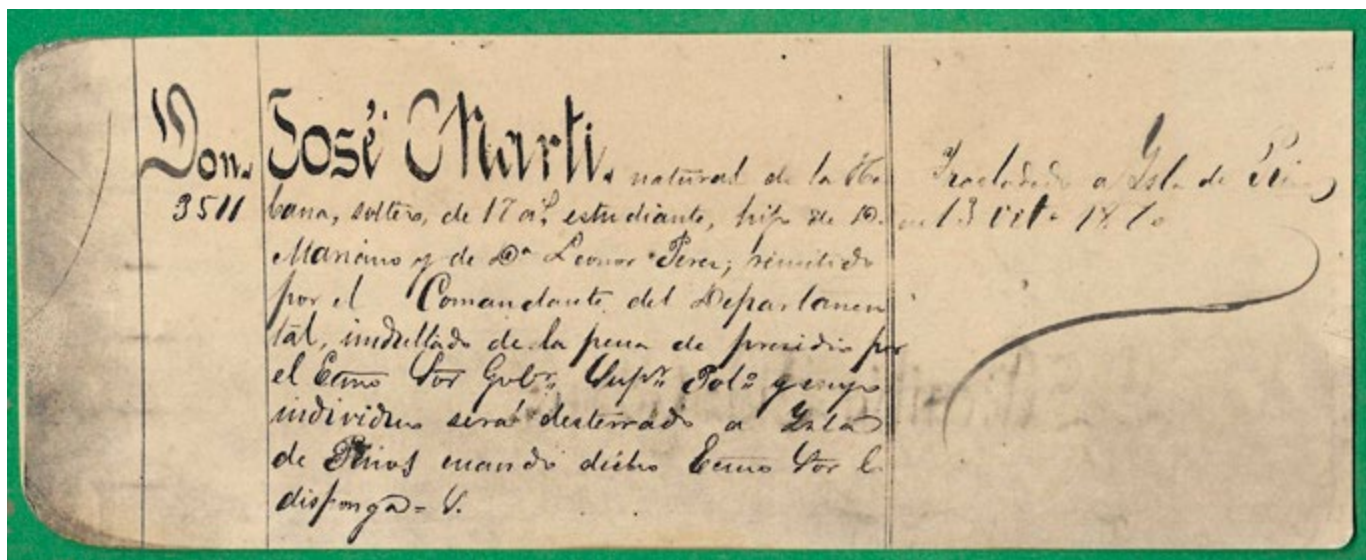 Don. José Marti. natural de la Ha-
3511 bana, soltero, de 17 a.s, estudiante, hijo de D.
Mariano y de D.a Leonor Perez; remitido
por el Comandante del Departamen
tal, indultado de la pena de presidio por
el Ecmo Sor Gobr. Supr. Polo. y cuyo
individuo será desterrado a Isla
de Pinos cuando dicho Ecmo Sor lo
disponga = V.
Trasladado a Isla de Pinos
en 13 oct. 1870